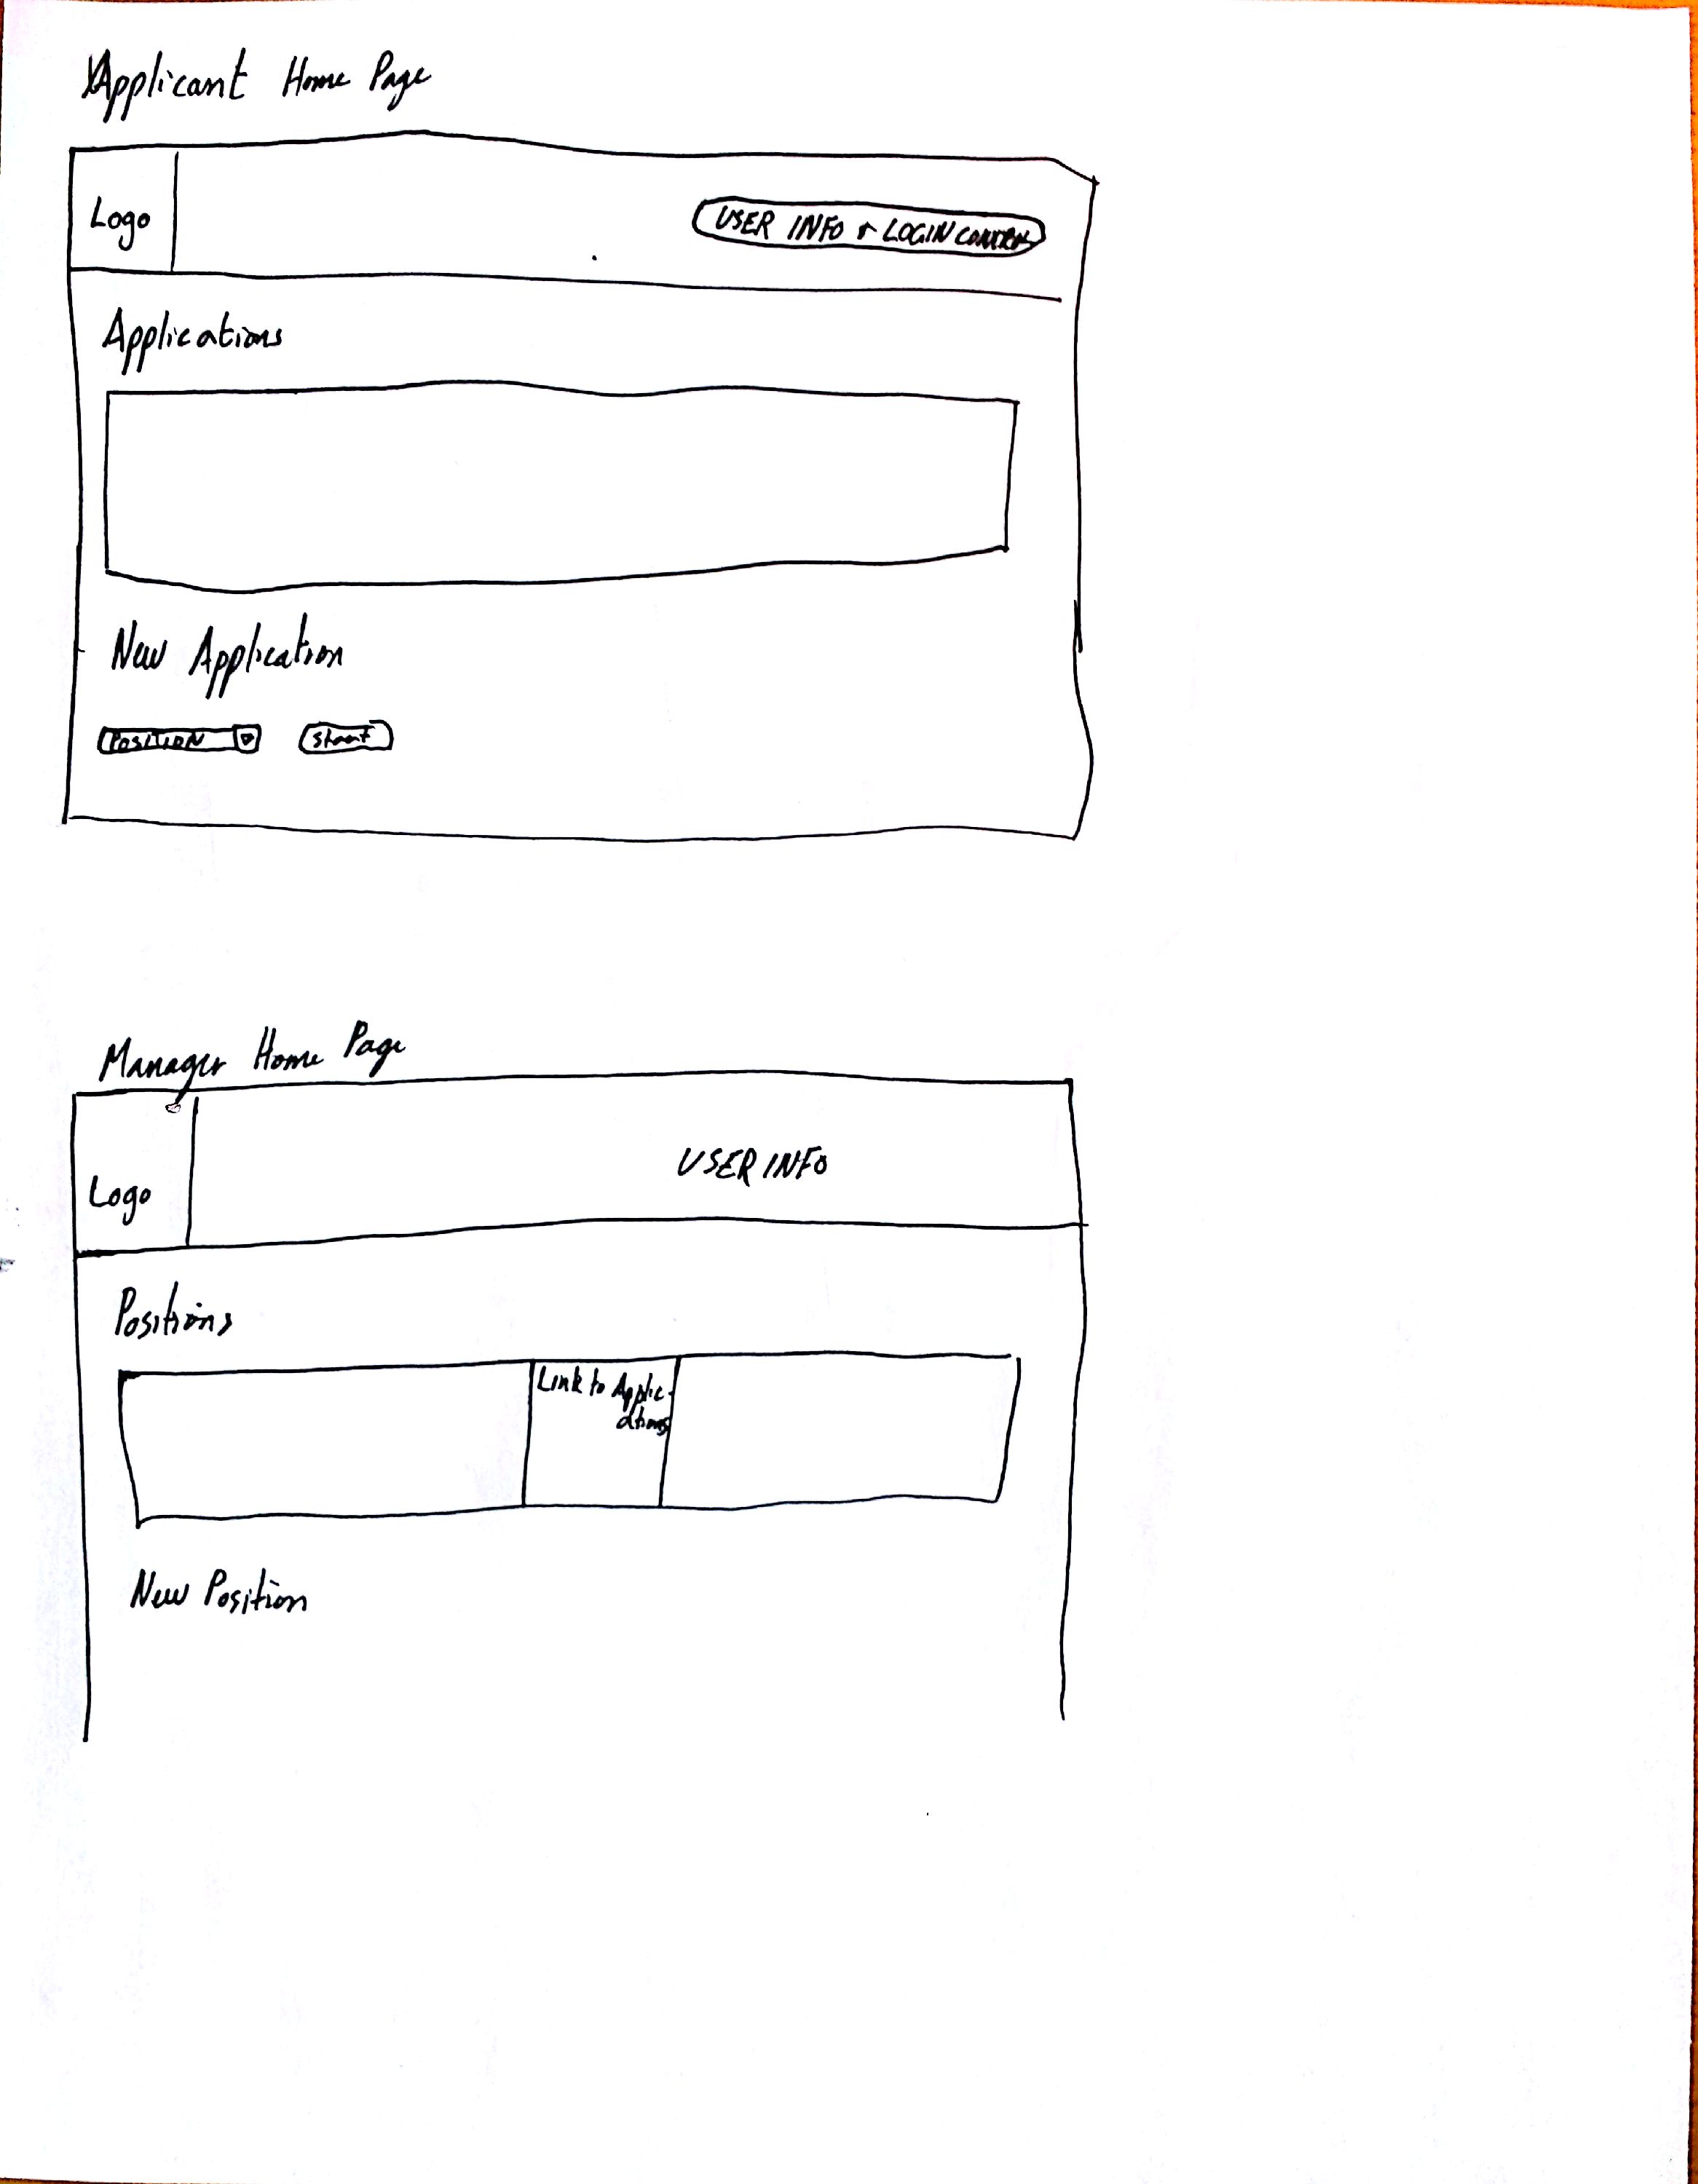 Applicant Home Page
Logo
USER INFO & LOGIN CONTROL
Applications
New Application
POSITION
Start
Manager Home Page
Logo
USER INFO
Positions
Link to Applic-
ations
New Position